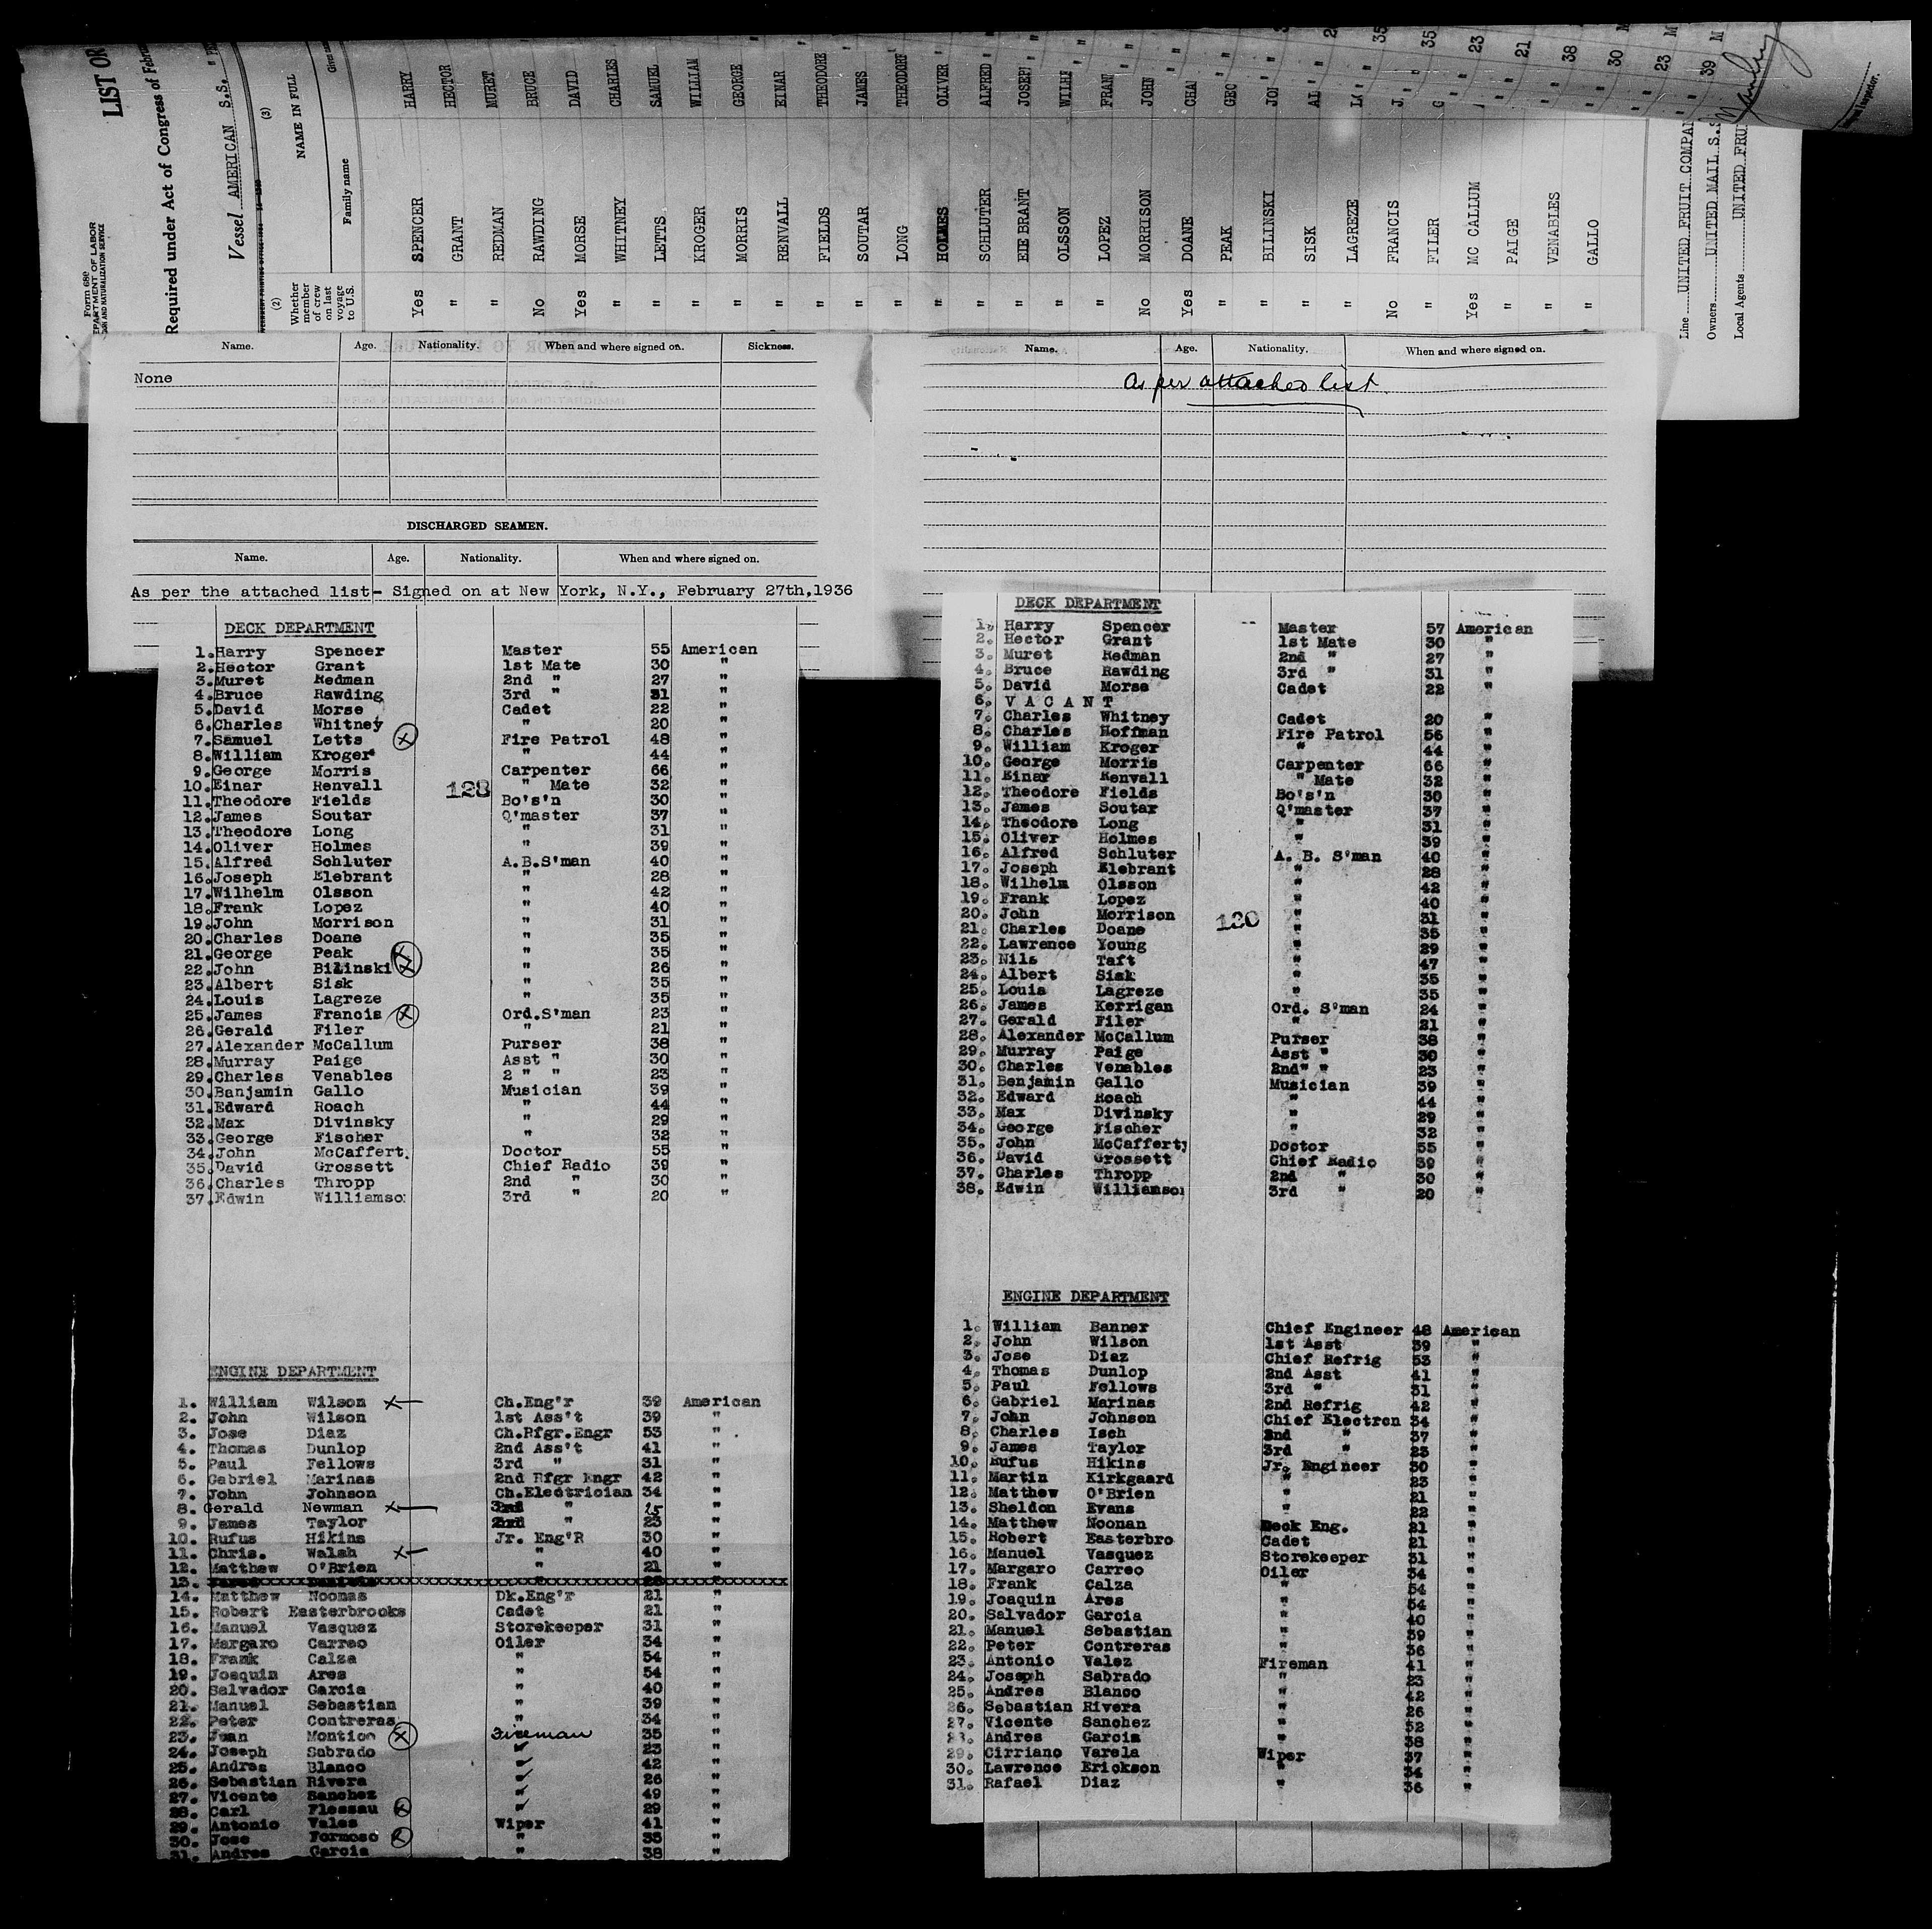 Form 689
LIST OR
Required under Act of Congress of Febru
Vessel AMERICAN S.S. "
(2) (3)
Whether member of crew on last voyage to U.S. NAME IN FULL
Family name Given name
Yes SPENCER HARRY
" GRANT HECTOR
" REDMAN MURET
No RAWDING BRUCE
Yes MORSE DAVID
" WHITNEY CHARLES
" LETTS SAMUEL
" KROGER WILLIAM
" MORRIS GEORGE
" RENVALL EINAR
" FIELDS THEODORE
" SOUTAR JAMES
" LONG THEODORE
" HOLMES OLIVER
" SCHLUTER ALFRED
" EIEBRANT JOSEPH
" OLSSON WILH
" LOPEZ FRAN
No MORRISON JOHN
Yes DOANE CHA
" PEAK GEO
" BILINSKI JO
" SISK AL
" LAGREZE LO
No FRANCIS J
" FILER G
Yes MC CALLUM
" PAIGE
" VENABLES
" GALLO
35 35 23 21 38 30 23 39
Line UNITED FRUIT COMPAN
Owners UNITED MAIL S.S
Local Agents UNITED FRUI
Name. Age. Nationality. When and where signed on. Sickness.
None
DISCHARGED SEAMEN.
Name. Age. Nationality. When and where signed on.
As per the attached list- Signed on at New York, N.Y., February 27th,1936
DECK DEPARTMENT
1. Harry Spencer Master 55 American
2. Hector Grant 1st Mate 30 "
3. Muret Redman 2nd " 27 "
4. Bruce Rawding 3rd " 31 "
5. David Morse Cadet 22 "
6. Charles Whitney " 20 "
7. Samuel Letts X Fire Patrol 48 "
8. William Kroger " 44 "
9. George Morris Carpenter 66 "
10. Einar Renvall 128 " Mate 32 "
11. Theodore Fields Bo's'n 30 "
12. James Soutar Q'master 37 "
13. Theodore Long " 31 "
14. Oliver Holmes " 39 "
15. Alfred Schluter A.B.S'man 40 "
16. Joseph Elebrant " 28 "
17. Wilhelm Olsson " 42 "
18. Frank Lopez " 40 "
19. John Morrison " 31 "
20. Charles Doane " 35 "
21. George Peak X " 35 "
22. John Bilinski X " 26 "
23. Albert Sisk " 35 "
24. Louis Lagreze " 35 "
25. James Francis X Ord.S'man 23 "
26. Gerald Filer " 21 "
27. Alexander McCallum Purser 38 "
28. Murray Paige Asst " 30 "
29. Charles Venables 2 " " 23 "
30. Banjamin Gallo Musician 39 "
31. Edward Roach " 44 "
32. Max Divinsky " 29 "
33. George Fischer " 32 "
34. John McCaffert. Doctor 55 "
35. David Grossett Chief Radio 39 "
36. Charles Thropp 2nd " 30 "
37. Edwin Williamso 3rd " 20 "
ENGINE DEPARTMENT
1. William Wilson X Ch.Eng'r 39 American
2. John Wilson 1st Ass't 39 "
3. Jose Diaz Ch.Rfgr.Engr 53 "
4. Thomas Dunlop 2nd Ass't 41 "
5. Paul Fellows 3rd " 31 "
6. Gabriel Marinas 2nd Rfgr Engr 42 "
7. John Johnson Ch.Electrician 34 "
8. Gerald Newman X " "
9. James Taylor " 23 "
10. Rufus Hikins Jr. Eng'R 30 "
11. Chris. Walsh X " 40 "
12. Matthew O'Brien " 21 "
13.
14. Matthew Noonas Dk.Eng'r 21 "
15. Robert Easterbrooks Cadet 21 "
16. Manuel Vasquez Storekeeper 31 "
17. Margaro Carreo Oiler 34 "
18. Frank Calza " 54 "
19. Joaquin Ares " 54 "
20. Salvador Garcia " 40 "
21. Manuel Sebastian " 39 "
22. Peter Contreras " 34 "
23. Juan Montico X Fireman 35 "
24. Joseph Sabrado " 23 "
25. Andres Blanco " 42 "
26. Sebastian Rivera " 26 "
27. Vicente Sanchez " 49 "
28. Carl Flessau X " 29 "
29. Antonio Vales Wiper 41 "
30. Jose Formoso X " 35 "
31. Andres Garcia " 38 "
Name. Age. Nationality. When and where signed on.
As per attached list
DECK DEPARTMENT
1. Harry Spencer Master 57 American
2. Hector Grant 1st Mate 30 "
3. Muret Redman 2nd " 27 "
4. Bruce Rawding 3rd " 31 "
5. David Morse Cadet 22 "
6. V A C A N T
7. Charles Whitney Cadet 20 "
8. Charles Hoffman Fire Patrol 56 "
9. William Kroger " 44 "
10. George Morris Carpenter 66 "
11. Einar Renvall " Mate 32 "
12. Theodore Fields Bo's'n 30 "
13. James Soutar Q'master 37 "
14. Theodore Long " 31 "
15. Oliver Holmes " 39 "
16. Alfred Schluter A. B. S'man 40 "
17. Joseph Elebrant " 28 "
18. Wilhelm Olsson " 42 "
19. Frank Lopez " 40 "
20. John Morrison 120 " 31 "
21. Charles Doane " 35 "
22. Lawrence Young " 29 "
23. Nils Taft " 47 "
24. Albert Sisk " 35 "
25. Louis Lagreze " 35 "
26. James Kerrigan Ord. S'man 24 "
27. Gerald Filer " 21 "
28. Alexander McCallum Purser 38 "
29. Murray Paige Asst " 30 "
30. Charles Venables 2nd" " 23 "
31. Benjamin Gallo Musician 39 "
32. Edward Roach " 44 "
33. Max Divinsky " 29 "
34. George Fischer " 32 "
35. John McCafferty Doctor 55 "
36. David Grossett Chief Radio 39 "
37. Charles Thropp 2nd " 30 "
38. Edwin Williamso 3rd " 20 "
ENGINE DEPARTMENT
1. William Banner Chief Engineer 48 American
2. John Wilson 1st Asst 39 "
3. Jose Diaz Chief Refrig 53 "
4. Thomas Dunlop 2nd Asst 41 "
5. Paul Fellows 3rd " 31 "
6. Gabriel Marinas 2nd Refrig 42 "
7. John Johnson Chief Electron 34 "
8. Charles Isch 2nd " 37 "
9. James Taylor 3rd " 23 "
10. Rufus Hikins Jr. Engineer 30 "
11. Martin Kirkgaard " 23 "
12. Matthew O'Brien " 21 "
13. Sheldon Evans " 22 "
14. Matthew Noonan Deck Eng. 21 "
15. Robert Easterbro Cadet 21 "
16. Manuel Vasquez Storekeeper 31 "
17. Margaro Carreo Oiler 34 "
18. Frank Calza " 54 "
19. Joaquin Ares " 54 "
20. Salvador Garcia " 40 "
21. Manuel Sebastian " 39 "
22. Peter Contreras " 36 "
23. Antonio Valez Fireman 41 "
24. Joseph Sabrado " 23 "
25. Andres Blanco " 42 "
26. Sebastian Rivera " 26 "
27. Vicente Sanchez " 52 "
28. Andres Garcia " 38 "
29. Cirriano Varela Wiper 37 "
30. Lawrence Erickson " 34 "
31. Rafael Diaz " 36 "